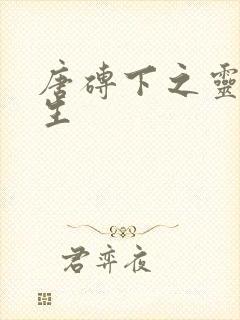 唐磚下之靈
生
君弈夜